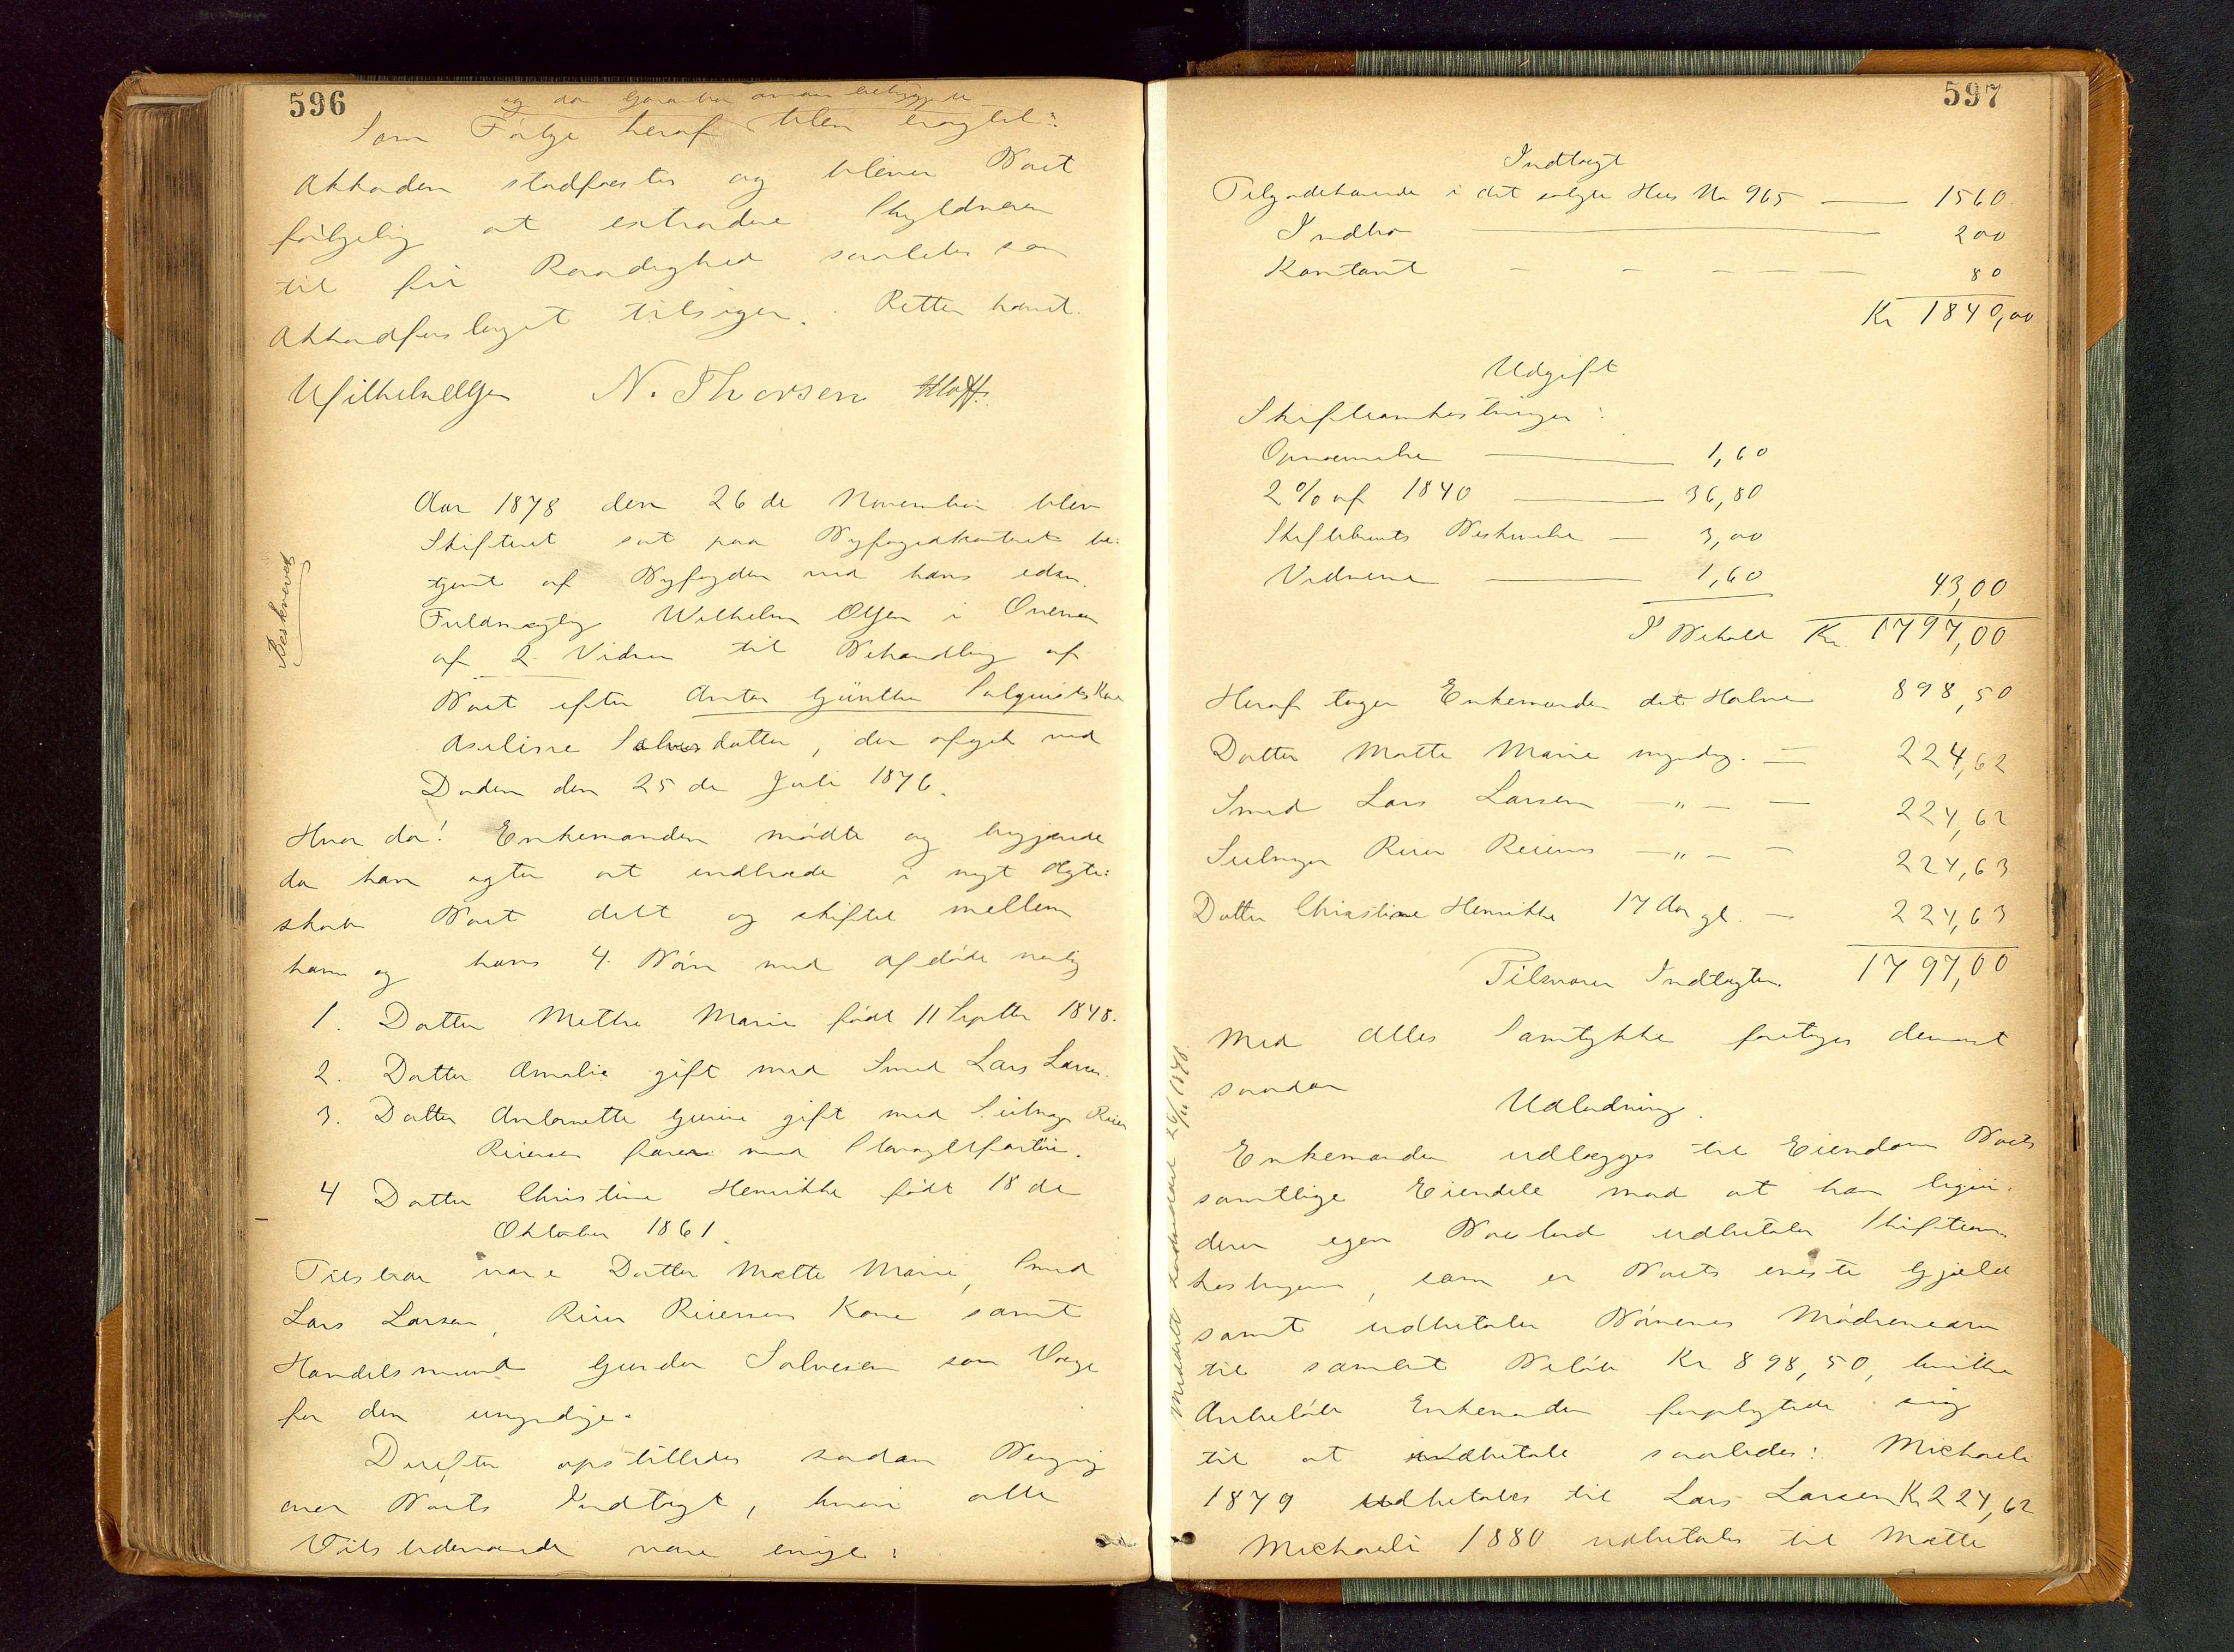 596
og da
Som Følge heraf blev eragtet:
Akkorden stadfæstes og bliver Boet
følgelig at extradere Skyldneren
til fri Raadighed saaledes som
Akkordforslaget tilsiger. Retten hævet.
Wilhelm Olsen N. Thorsen Hloff
Beskrevet
Aar 1878 den 26de November blev
Skifteret sat paa Byfogedkontoret be-
tjent af Byfogden ved hans edsv.
Fuldmægtig Wilhelm Olsen i Overvær
af 2 Vidner til Behandling af
Boet efter Anton Günther Salquists Kone
Aseline Salvesdatter, der afgik ved
Døden den 25de Juli 1876.
Hvor da! Enkemanden mødte og begjærede
da han agter at indtræde i nyt Ægte-
skab Boet delt og skiftet mellem
ham og hans 4 Børn med afdøde nemlig
1. Datter Methe Marie født 11 Septbr 1848.
2. Datter Amalie gift med Smed Lars Larsen.
3. Datter Antonette Gurine gift med Reier
Reiersen farer med
4 Datter Christine Henrikke født 18de
Oktober 1861.
Tilstede vare Datter Mætte Marie, Smed
Lars Larsen, Reier Reiersens Kone samt
Handelsmand Gunder Salvesen som Værge
for den umyndige.
Derefter opstilledes saadan Beregning
over Boets Indtægt, hvori alle
Vedkommende vare enige:
597
Indtægt
Tilgodehavende i det solgte Hus No 965 — 1560
Indbo — 200
Kontant - - - - - 80
Kr 1840,00
Udgift
Skifteomkostninger:
Opnævnelse — 1,60
2% af 1840 — 36,80
Skiftebrevets Beskrivelse — 3,00
Vidnerne — 1,60 43,00
I Behold Kr. 1797,00
Heraf tager Enkemanden det Halve 898,50
Datter Mætte Marie myndig. — 224,62
Smed Lars Larsen — „ — — 224,62
Reier Reiersen — „ — — 224,63
Datter Christine Henrikke 17 Aar gl. — 224,63
Tilsvarer Indtægten. 1797,00
Med Alles Samtykke foretoges dernæst
saadan
Udlodning.
Enkemanden udlægges til Eiendom Boets
samtlige Eiendele mod at han foruden
egen Boeslod udbetaler Skifteom-
kostningerne, som er Boets eneste Gjæld
samt udbetaler Børnenes Mødrenearv
til samlet Beløb Kr 898,50, hvilke
Arvebeløb Enkemanden forpligtede sig
til at udbetale saaledes: Michaeli
1879 udbetales til Lars Larsen Kr 224,62
Michaeli 1880 udbetales til Mætte
Meddelt 26/11 1878.